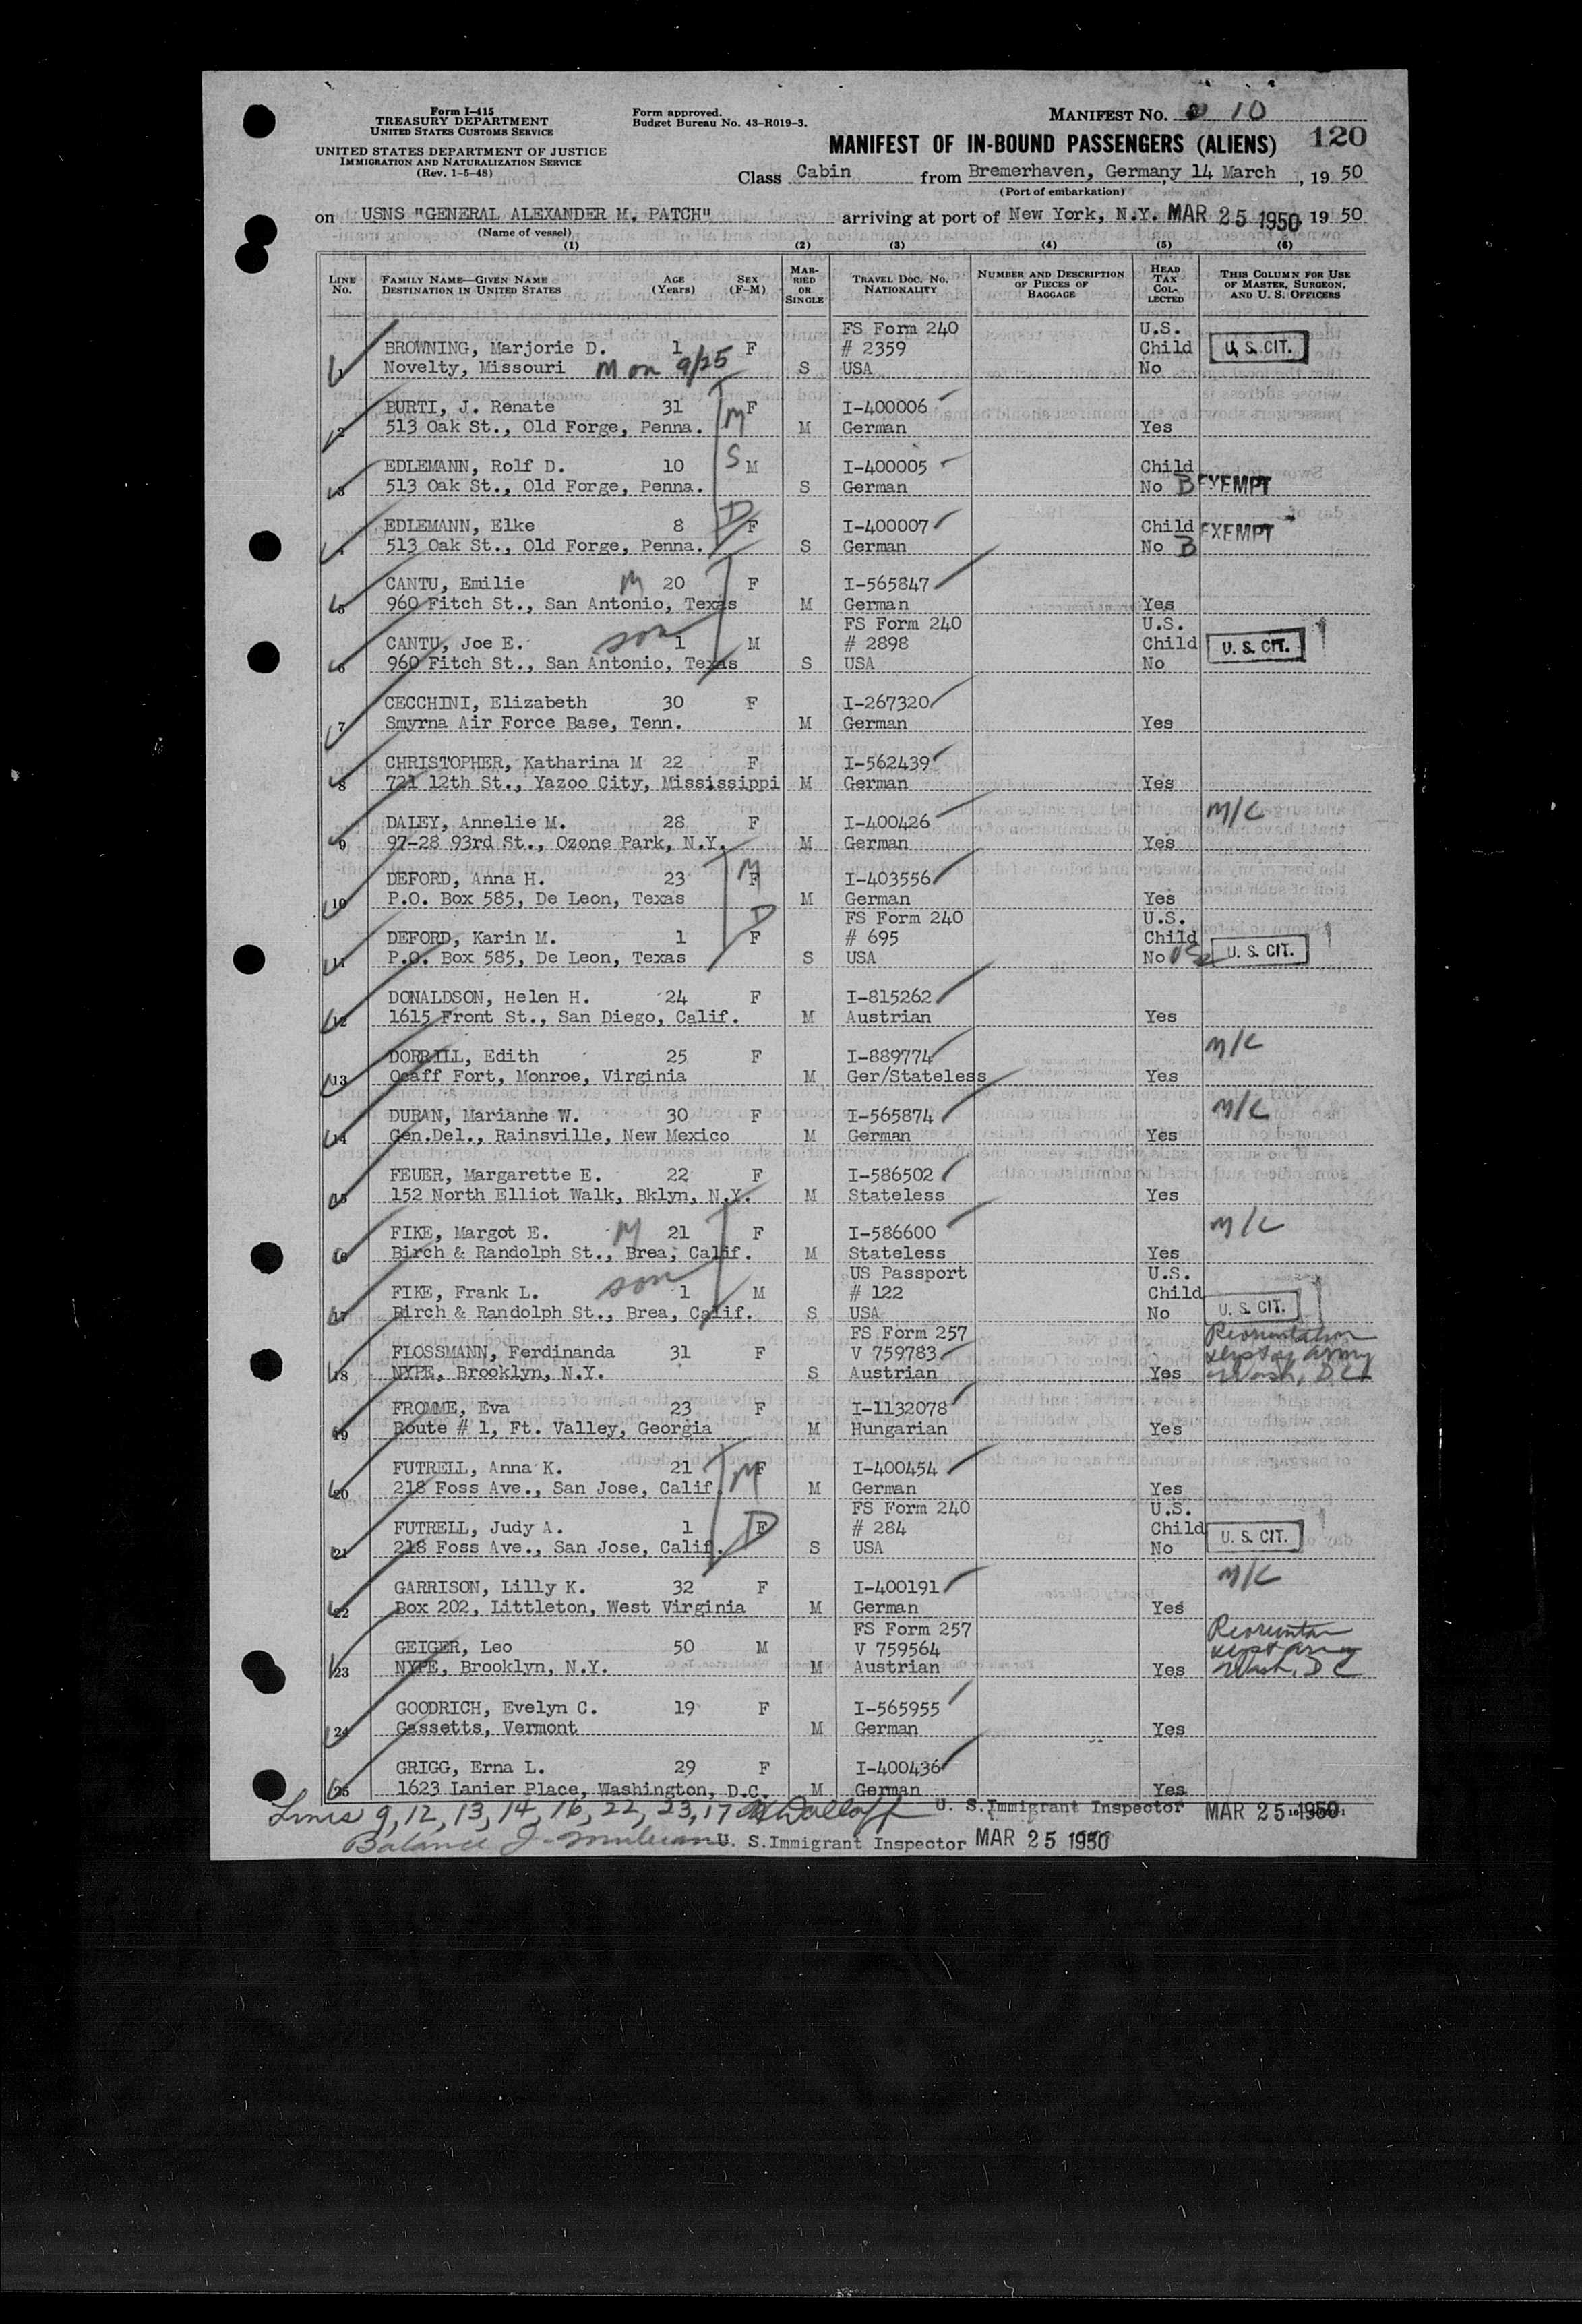 Form I-415
TREASURY DEPARTMENT
UNITED STATES CUSTOMS SERVICE
UNITED STATES DEPARTMENT OF JUSTICE
IMMIGRATION AND NATURALIZATION SERVICE
(Rev. 1-5-48)
Form approved.
Budget Bureau No. 43-R019-3.
MANIFEST NO. 10
MANIFEST OF IN-BOUND PASSENGERS (ALIENS) 120
Class Cabin from Bremerhaven, Germany, 14 March, 19 50
(Port of embarkation)
on USNS "GENERAL ALEXANDER M. PATCH" arriving at port of New York, N.Y. MAR 25 1950, 19 50
(Name of vessel)
(1) (2) (3) (4) (5) (6)
LINE No. FAMILY NAME—GIVEN NAME DESTINATION IN UNITED STATES AGE (Years) SEX (F-M) MARRIED OR SINGLE TRAVEL DOC. NO. NATIONALITY NUMBER AND DESCRIPTION OF PIECES OF BAGGAGE HEAD TAX COLLECTED THIS COLUMN FOR USE OF MASTER, SURGEON, AND U. S. OFFICERS
FS Form 240 U.S.
BROWNING, Marjorie D. 1 F # 2359 Child U. S. CIT.
1 Novelty, Missouri M on 9/25 S USA No
BURTI, J. Renate 31 M F I-400006
2 513 Oak St., Old Forge, Penna. M German Yes
EDLEMANN, Rolf D. 10 S M I-400005 Child
3 513 Oak St., Old Forge, Penna. S German No B EXEMPT
EDLEMANN, Elke 8 D F I-400007 Child EXEMPT
4 513 Oak St., Old Forge, Penna. S German No B
CANTU, Emilie M 20 F I-565847
5 960 Fitch St., San Antonio, Texas M German Yes
FS Form 240 U.S.
CANTU, Joe E. son 1 M # 2898 Child U. S. CIT.
6 960 Fitch St., San Antonio, Texas S USA No
CECCHINI, Elizabeth 30 F I-267320
7 Smyrna Air Force Base, Tenn. M German Yes
CHRISTOPHER, Katharina M 22 F I-562439
8 721 12th St., Yazoo City, Mississippi M German Yes
DALEY, Annelie M. 28 F I-400426 M/C
9 97-28 93rd St., Ozone Park, N.Y. M German Yes
DEFORD, Anna H. 23 M F I-403556
10 P.O. Box 585, De Leon, Texas M German Yes
FS Form 240 U.S.
DEFORD, Karin M. 1 D F # 695 Child
11 P.O. Box 585, De Leon, Texas S USA No U. S. CIT.
DONALDSON, Helen H. 24 F I-815262
12 1615 Front St., San Diego, Calif. M Austrian Yes
DORRILL, Edith 25 F I-889774 M/C
13 Ocaff Fort, Monroe, Virginia M Ger/Stateless Yes
DURAN, Marianne W. 30 F I-565874 M/C
14 Gen.Del., Rainsville, New Mexico M German Yes
FEUER, Margarette E. 22 F I-586502
15 152 North Elliot Walk, Bklyn, N.Y. M Stateless Yes
FIKE, Margot E. M 21 F I-586600 M/C
16 Birch & Randolph St., Brea, Calif. M Stateless Yes
US Passport U.S.
FIKE, Frank L. son 1 M # 122 Child
17 Birch & Randolph St., Brea, Calif. S USA No U. S. CIT.
FS Form 257
FLOSSMANN, Ferdinanda 31 F V 759783 Army
18 NYPE, Brooklyn, N.Y. S Austrian Yes Wash, D C
FROMME, Eva 23 F I-1132078
19 Route # 1, Ft. Valley, Georgia M Hungarian Yes
FUTRELL, Anna K. 21 M F I-400454
20 218 Foss Ave., San Jose, Calif. M German Yes
FS Form 240 U.S.
FUTRELL, Judy A. 1 D F # 284 Child U. S. CIT.
21 218 Foss Ave., San Jose, Calif. S USA No
GARRISON, Lilly K. 32 F I-400191 M/C
22 Box 202, Littleton, West Virginia M German Yes
FS Form 257
GEIGER, Leo 50 M V 759564 Army
23 NYPE, Brooklyn, N.Y. M Austrian Yes Wash, D C
GOODRICH, Evelyn C. 19 F I-565955
24 Gassetts, Vermont M German Yes
GRIGG, Erna L. 29 F I-400436
25 1623 Lanier Place, Washington, D.C. M German Yes
Lines 9, 12, 13, 14, 16, 22, 23, 17 U. S. Immigrant Inspector MAR 25 1950
Balance U. S. Immigrant Inspector MAR 25 1950